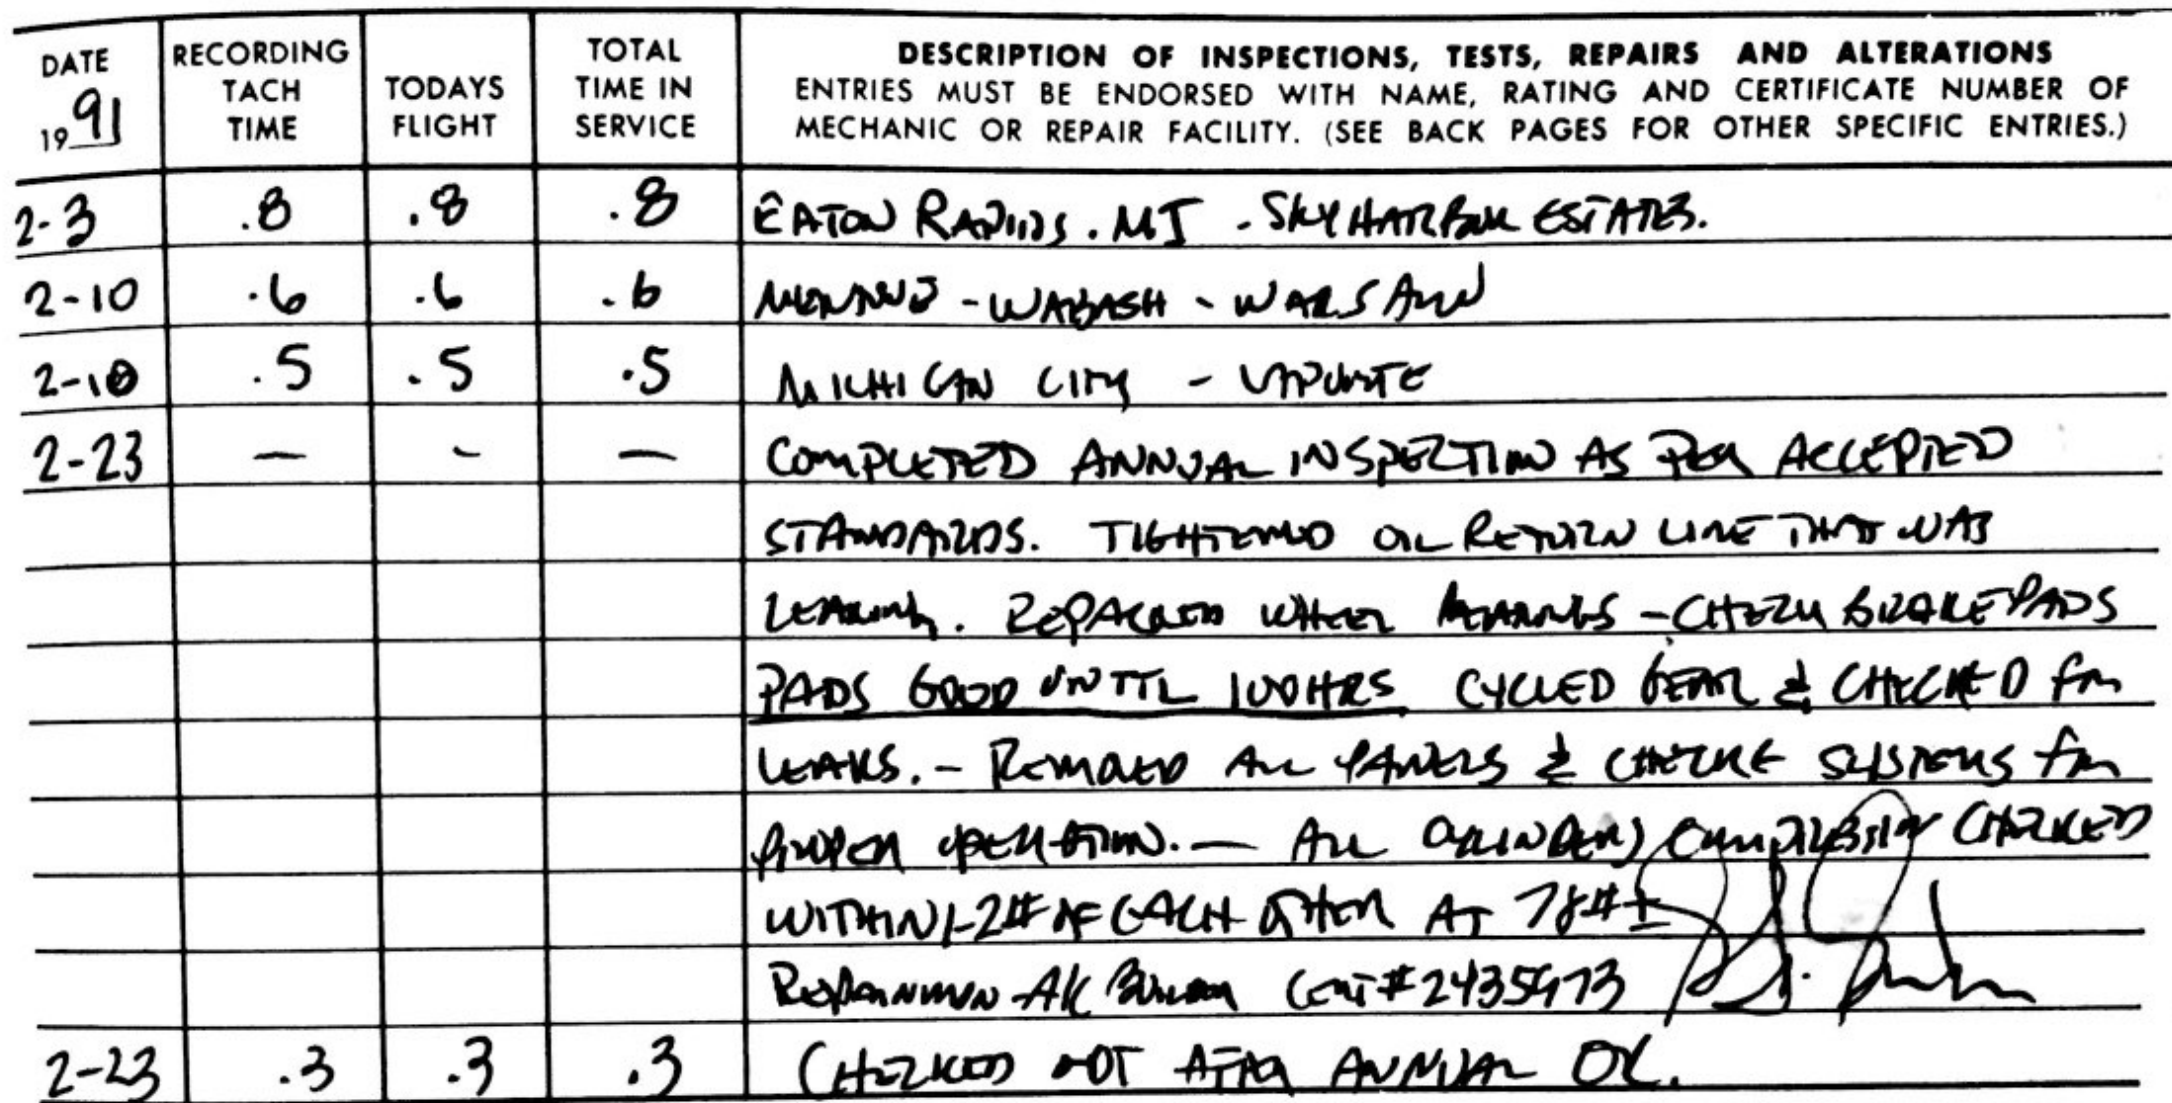 DATE 1991 RECORDING TACH TIME TODAYS FLIGHT TOTAL TIME IN SERVICE DESCRIPTION OF INSPECTIONS, TESTS, REPAIRS AND ALTERATIONS
ENTRIES MUST BE ENDORSED WITH NAME, RATING AND CERTIFICATE NUMBER OF
MECHANIC OR REPAIR FACILITY. (SEE BACK PAGES FOR OTHER SPECIFIC ENTRIES.)
2-3 .8 .8 .8 EATON RAPIDS. MI - SKYHARBOR ESTATES.
2-10 .6 .6 .6 - WABASH - WARSAW
2-10 .5 .5 .5 MICHIGAN CITY -
2-23 — - — COMPLETED ANNUAL INSPECTION AS PER ACCEPTED
STANDARDS. TIGHTENED OIL RETURN LINE THAT WAS
LEAKING. REPACKED WHEEL BEARINGS - CHECK BRAKE PADS
PADS GOOD UNTIL 100HRS CYCLED GEAR & CHECKED for
LEAKS. - REMOVED ALL PANELS & CHECKE SYSTEMS for
PROPER OPERATION. — ALL CYLINDERS COMPRESSION CHECKED
WITHIN 1-2# OF EACH OTHER AT 78# ±
CERT#
2-23 .3 .3 .3 CHECKED OUT AFTER ANNUAL OK.